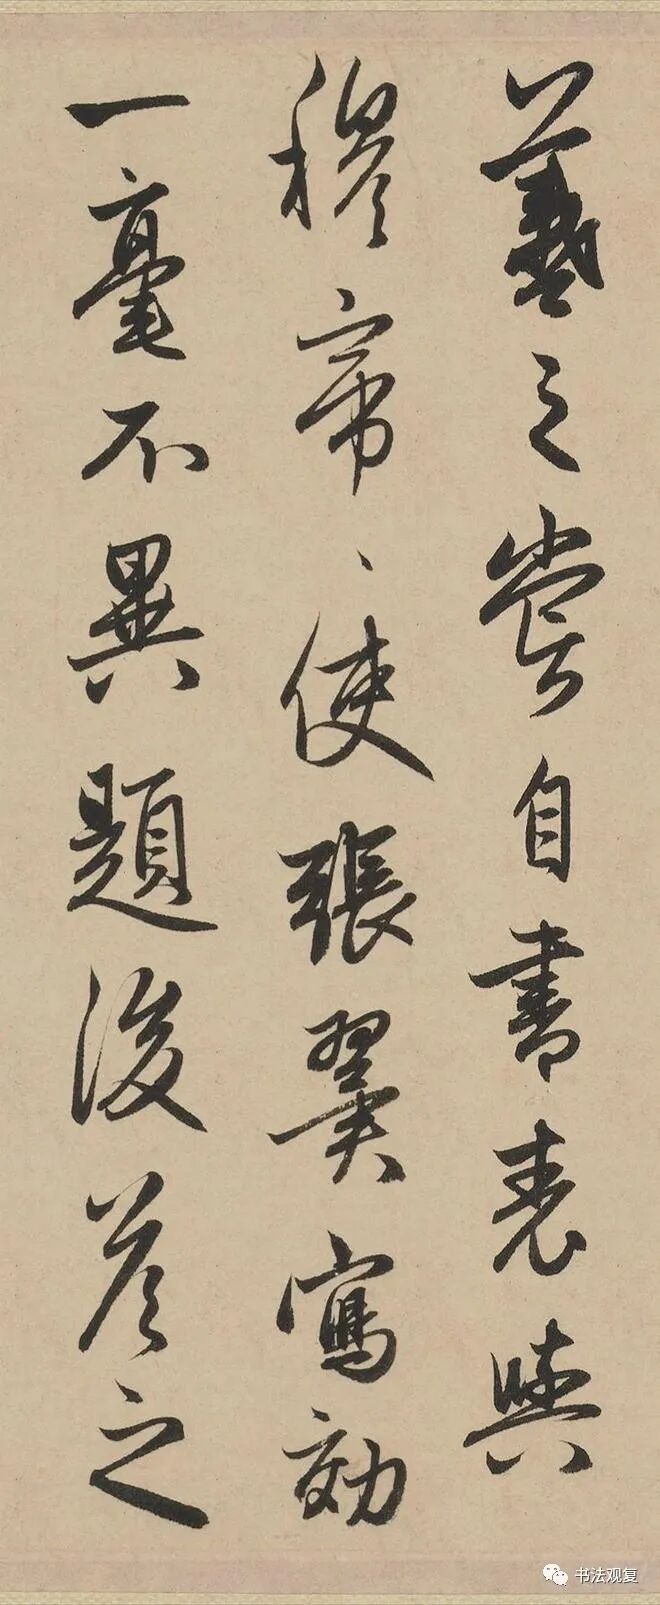 羲之嘗自書表與
穆帝〻使張翼寫効
一毫不異題後答之
书法观复